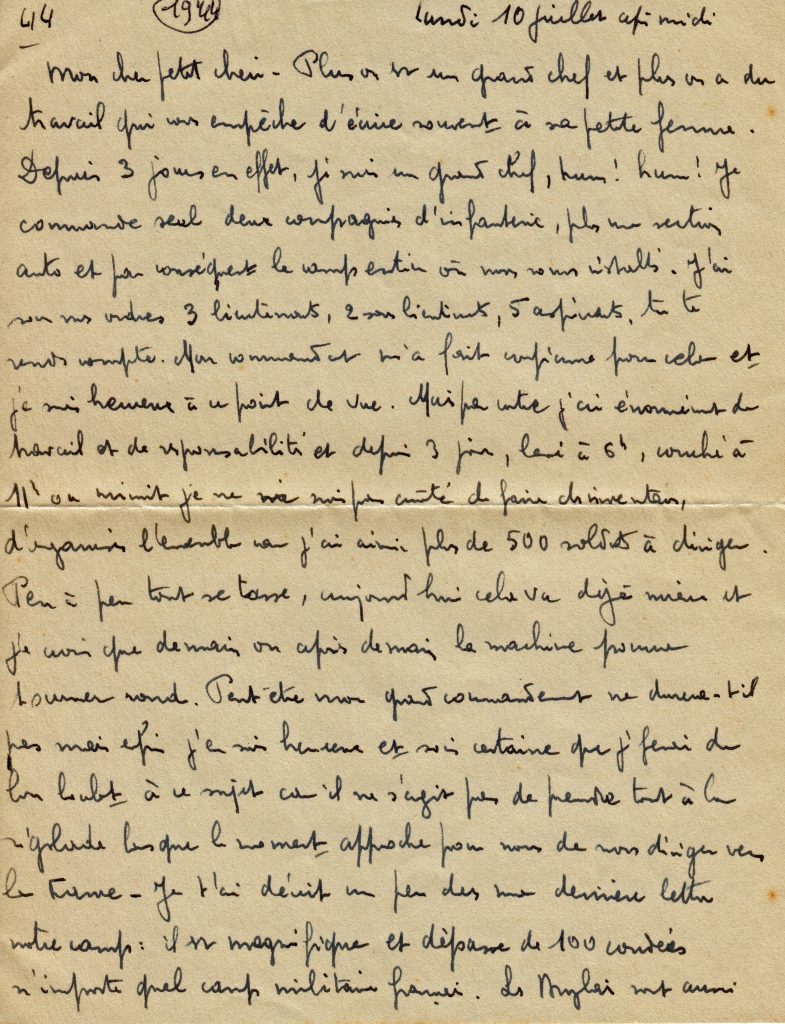 44 1944 lundi 10 juillet après midi
Mon cher petit chéri - Plus on est un grand chef et plus on a du
travail qui vous empêche d'écrire souvent à sa petite femme.
Depuis 3 jours en effet, je suis un grand chef, hum! hum! Je
commande seul deux compagnies d'infanterie, plus une section
auto et par conséquent le camp entier où nous sommes installés. J'ai
sous mes ordres 3 lieutenants, 2 sous lieutenants, 5 aspirants, tu te
rends compte. Mon commandant m'a fait confiance pour cela et
je suis heureux à ce point de vue. Mais par contre j'ai énormément de
travail et de responsabilité et depuis 3 jours, levé à 6h, couché à
11h ou minuit je ne suis pas arrêté de faire des inventaires,
d'organiser l'ensemble car j'ai ainsi plus de 500 soldats à diriger.
Peu à peu tout se tasse, aujourd'hui cela va déjà mieux et
je crois que demain ou après demain la machine pourra
tourner rond. Peut-être mon grand commandement ne durera-t-il
pas mais enfin j'en suis heureux et sois certaine que je ferai du
bon boulot à ce sujet car il ne s'agit pas de prendre tout à la
rigolade lorsque le moment approche pour nous de nous diriger vers
la France - Je t'ai décrit un peu dans ma dernière lettre
notre camp: il est magnifique et dépasse de 100 coudées
n'importe quel camp militaire français. Les Anglais sont aussi